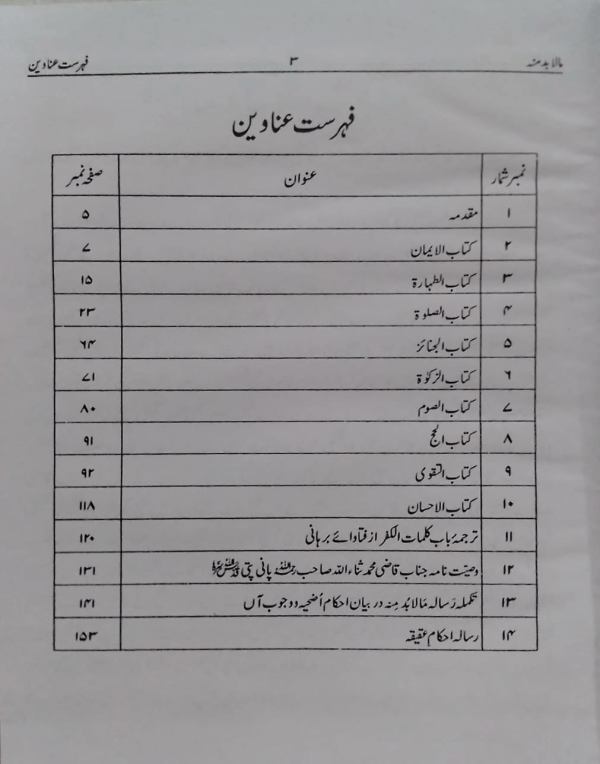 مالا بد منہ ۳ فہرست عناوین
فہرست عناوین
نمبر شمار عنوان صفحہ نمبر
۱ مقدمہ ۵
۲ کتاب الایمان ۷
۳ کتاب الطہارۃ ۱۵
۴ کتاب الصلوۃ ۲۳
۵ کتاب الجنائز ۶۴
۶ کتاب الزکوٰۃ ۷۱
۷ کتاب الصوم ۸۰
۸ کتاب الحج ۹۱
۹ کتاب التقوی ۹۲
۱۰ کتاب الاحسان ۱۱۸
۱۱ ترجمۂ باب کلمات الکفر از فتاوائے برہانی ۱۲۰
۱۲ وصیّت نامہ جناب قاضی محمد ثناء اللہ صاحب پانی پتی ۱۳۱
۱۳ تکملہ رسالہ مَالَا بُدّ مِنہ در بیان احکام اُضحیہ و وجوب آں ۱۴۱
۱۴ رسالہ احکام عقیقہ ۱۵۳